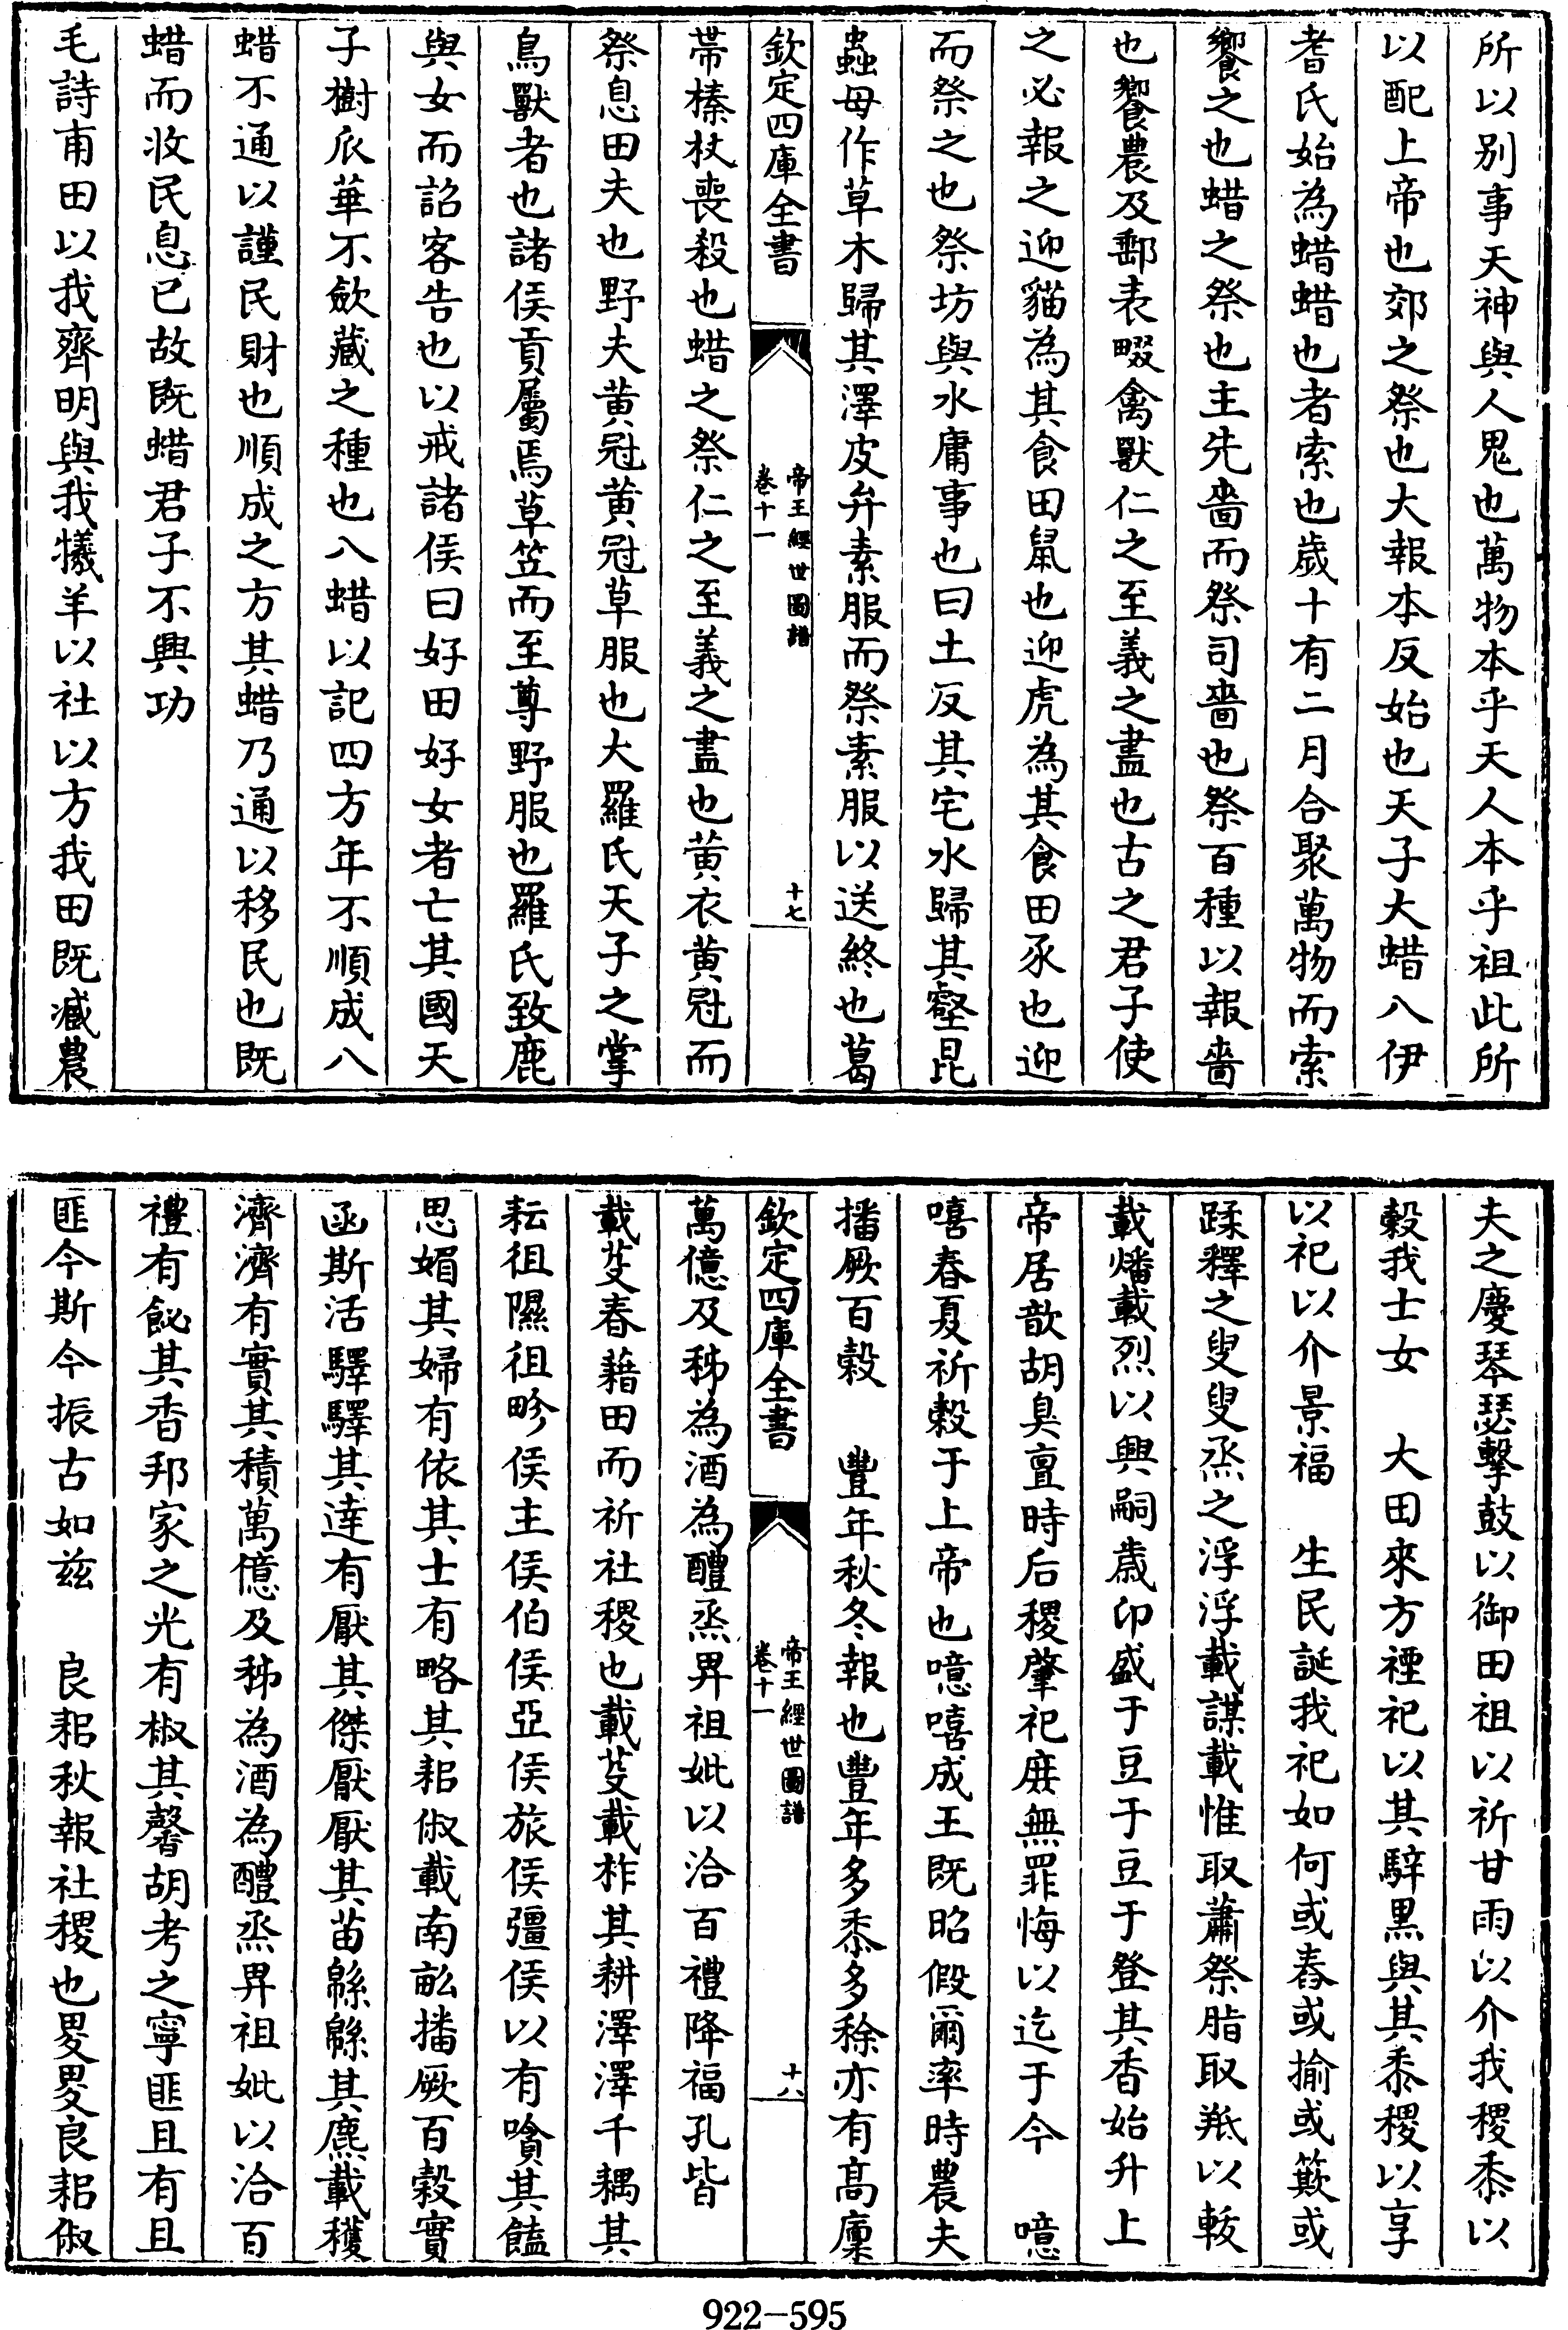 所以别事天神與人鬼也萬物本乎天人本乎祖此所
以配上帝也郊之祭也大報本反始也天子大蜡八伊
耆氏始為蜡蜡也者索也歲十有二月合聚萬物而索
饗之也蜡之祭也主先嗇而祭司嗇也祭百種以報嗇
也饗農及郵表畷禽獸仁之至義之盡也古之君子使
之必報之迎貓為其食田鼠也迎虎為其食田豕也迎
而祭之也祭坊與水庸事也曰土反其宅水歸其壑昆
蟲毋作草木歸其澤皮弁素服而祭素服以送終也葛
欽定四庫全書
帝王經世圖譜
卷十一
十七
帶榛杖喪殺也蜡之祭仁之至義之盡也黄衣黄冠而
祭息田夫也野夫黄冠黄冠草服也大羅氏天子之掌
鳥獸者也諸侯貢屬焉草笠而至尊野服也羅氏致鹿
與女而詔客告也以戒諸侯曰好田好女者亡其國天
子樹瓜華不歛藏之種也八蜡以記四方年不順成八
蜡不通以謹民財也順成之方其蜡乃通以移民也既
蜡而收民息已故既蜡君子不興功
毛詩甫田以我齊明與我犧羊以社以方我田既臧農
夫之慶琴瑟擊鼓以御田祖以祈甘雨以介我稷黍以
榖我士女　大田來方禋祀以其騂黑與其黍稷以享
以祀以介景福　生民誕我祀如何或舂或揄或簸或
蹂釋之叟叟烝之浮浮載謀載惟取蕭祭脂取羝以軷
載燔載烈以興嗣歲卬盛于豆于豆于登其香始升上
帝居歆胡臭亶時后稷肇祀庶無罪悔以迄于今　噫
嘻春夏祈榖于上帝也噫嘻成王既昭假爾率時農夫
播厥百榖　豐年秋冬報也豐年多黍多稌亦有高廩
欽定四庫全書
帝王經世圖譜
卷十一
十八
萬億及秭為酒為醴烝畀祖妣以洽百禮降福孔皆
載芟春藉田而祈社稷也載芟載柞其耕澤澤千耦其
耘徂隰徂畛侯主侯伯侯亞侯旅侯彊侯以有嗿其饁
思媚其婦有依其士有略其耜俶載南畝播厥百榖實
函斯活驛驛其達有厭其傑厭厭其苗緜緜其麃載穫
濟濟有實其積萬億及秭為酒為醴烝畀祖妣以洽百
禮有飶其香邦家之光有椒其馨胡考之寧匪且有且
匪今斯今振古如兹　良耜秋報社稷也畟畟良耜俶
922-595